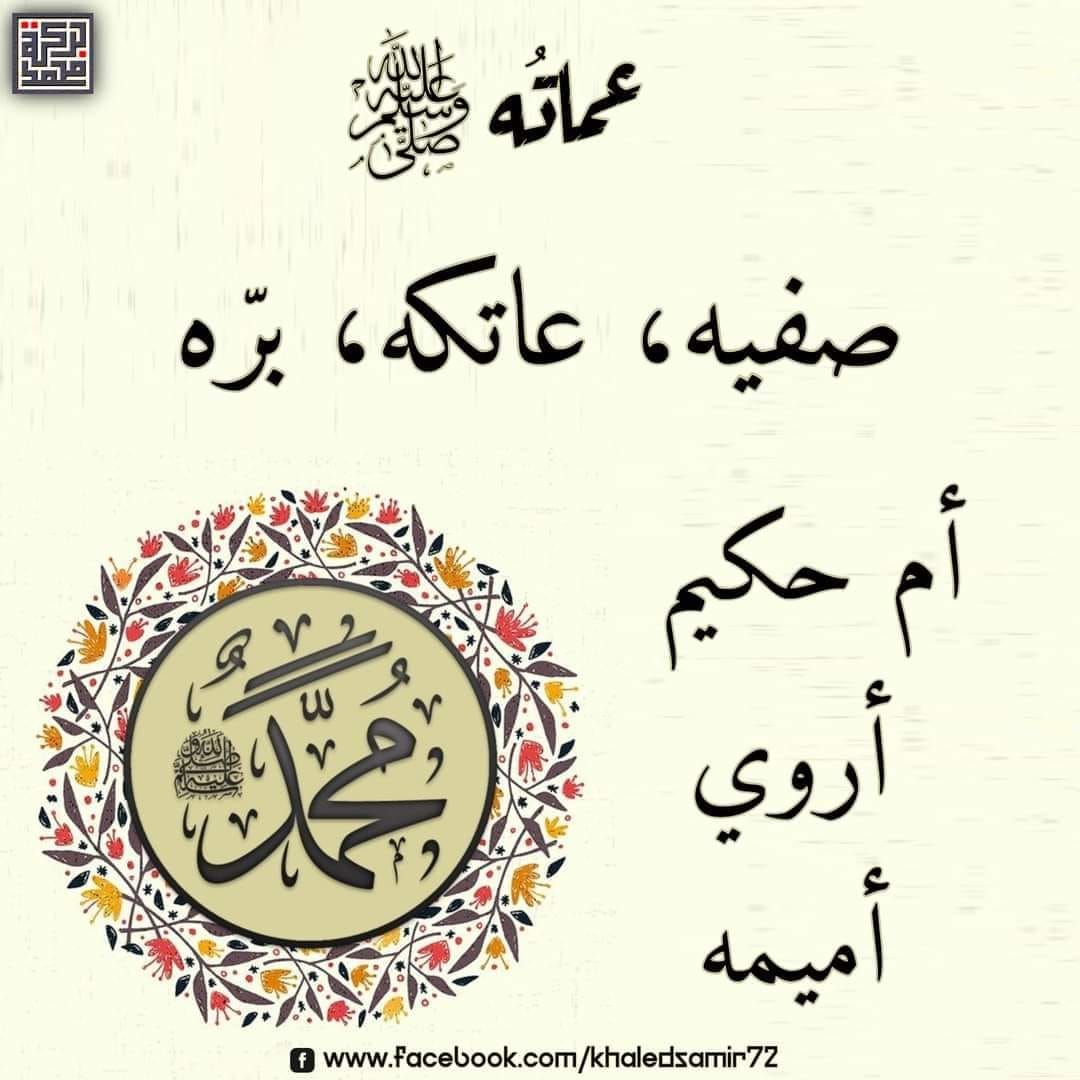 بركة محمد
عماتُه صلى الله عليه وسلم
صفيه، عاتكه، برّه
أم حكيم
أروي
أميمه
مُحمَّدٌ صلى الله عليه وسلم
www.facebook.com/khaledsamir72